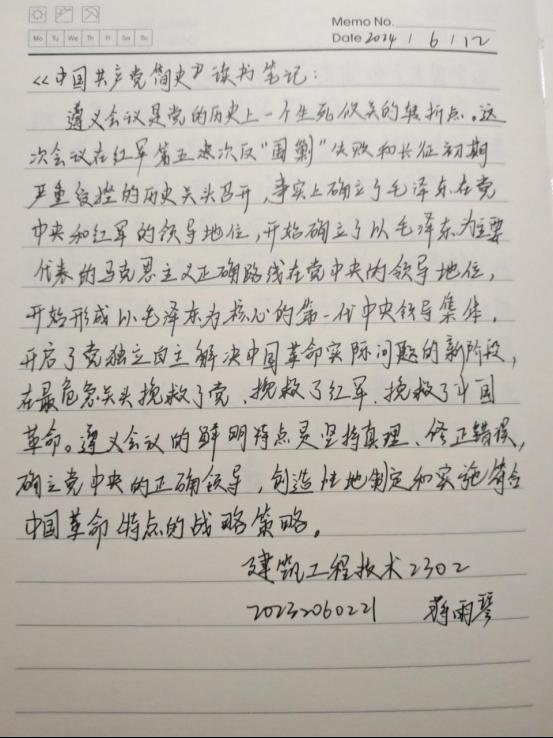 Memo No.
Mo Tu We Th Fr Sa Su
Date 2024 / 6 / 12
《中国共产党简史》读书笔记：
遵义会议是党的历史上一个生死攸关的转折点。这
次会议在红军第五次反"围剿"失败和长征初期
严重受挫的历史关头召开，事实上确立了毛泽东在党
中央和红军的领导地位，开始确立了以毛泽东为主要
代表的马克思主义正确路线在党中央的领导地位，
开始形成以毛泽东为核心的第一代中央领导集体，
开启了党独立自主解决中国革命实际问题的新阶段，
在最危急关头挽救了党、挽救了红军、挽救了中国
革命。遵义会议的鲜明特点是坚持真理、修正错误，
确立党中央的正确领导，创造性地制定和实施符合
中国革命特点的战略策略。
建筑工程技术2302
20232060221 蒋雨琴